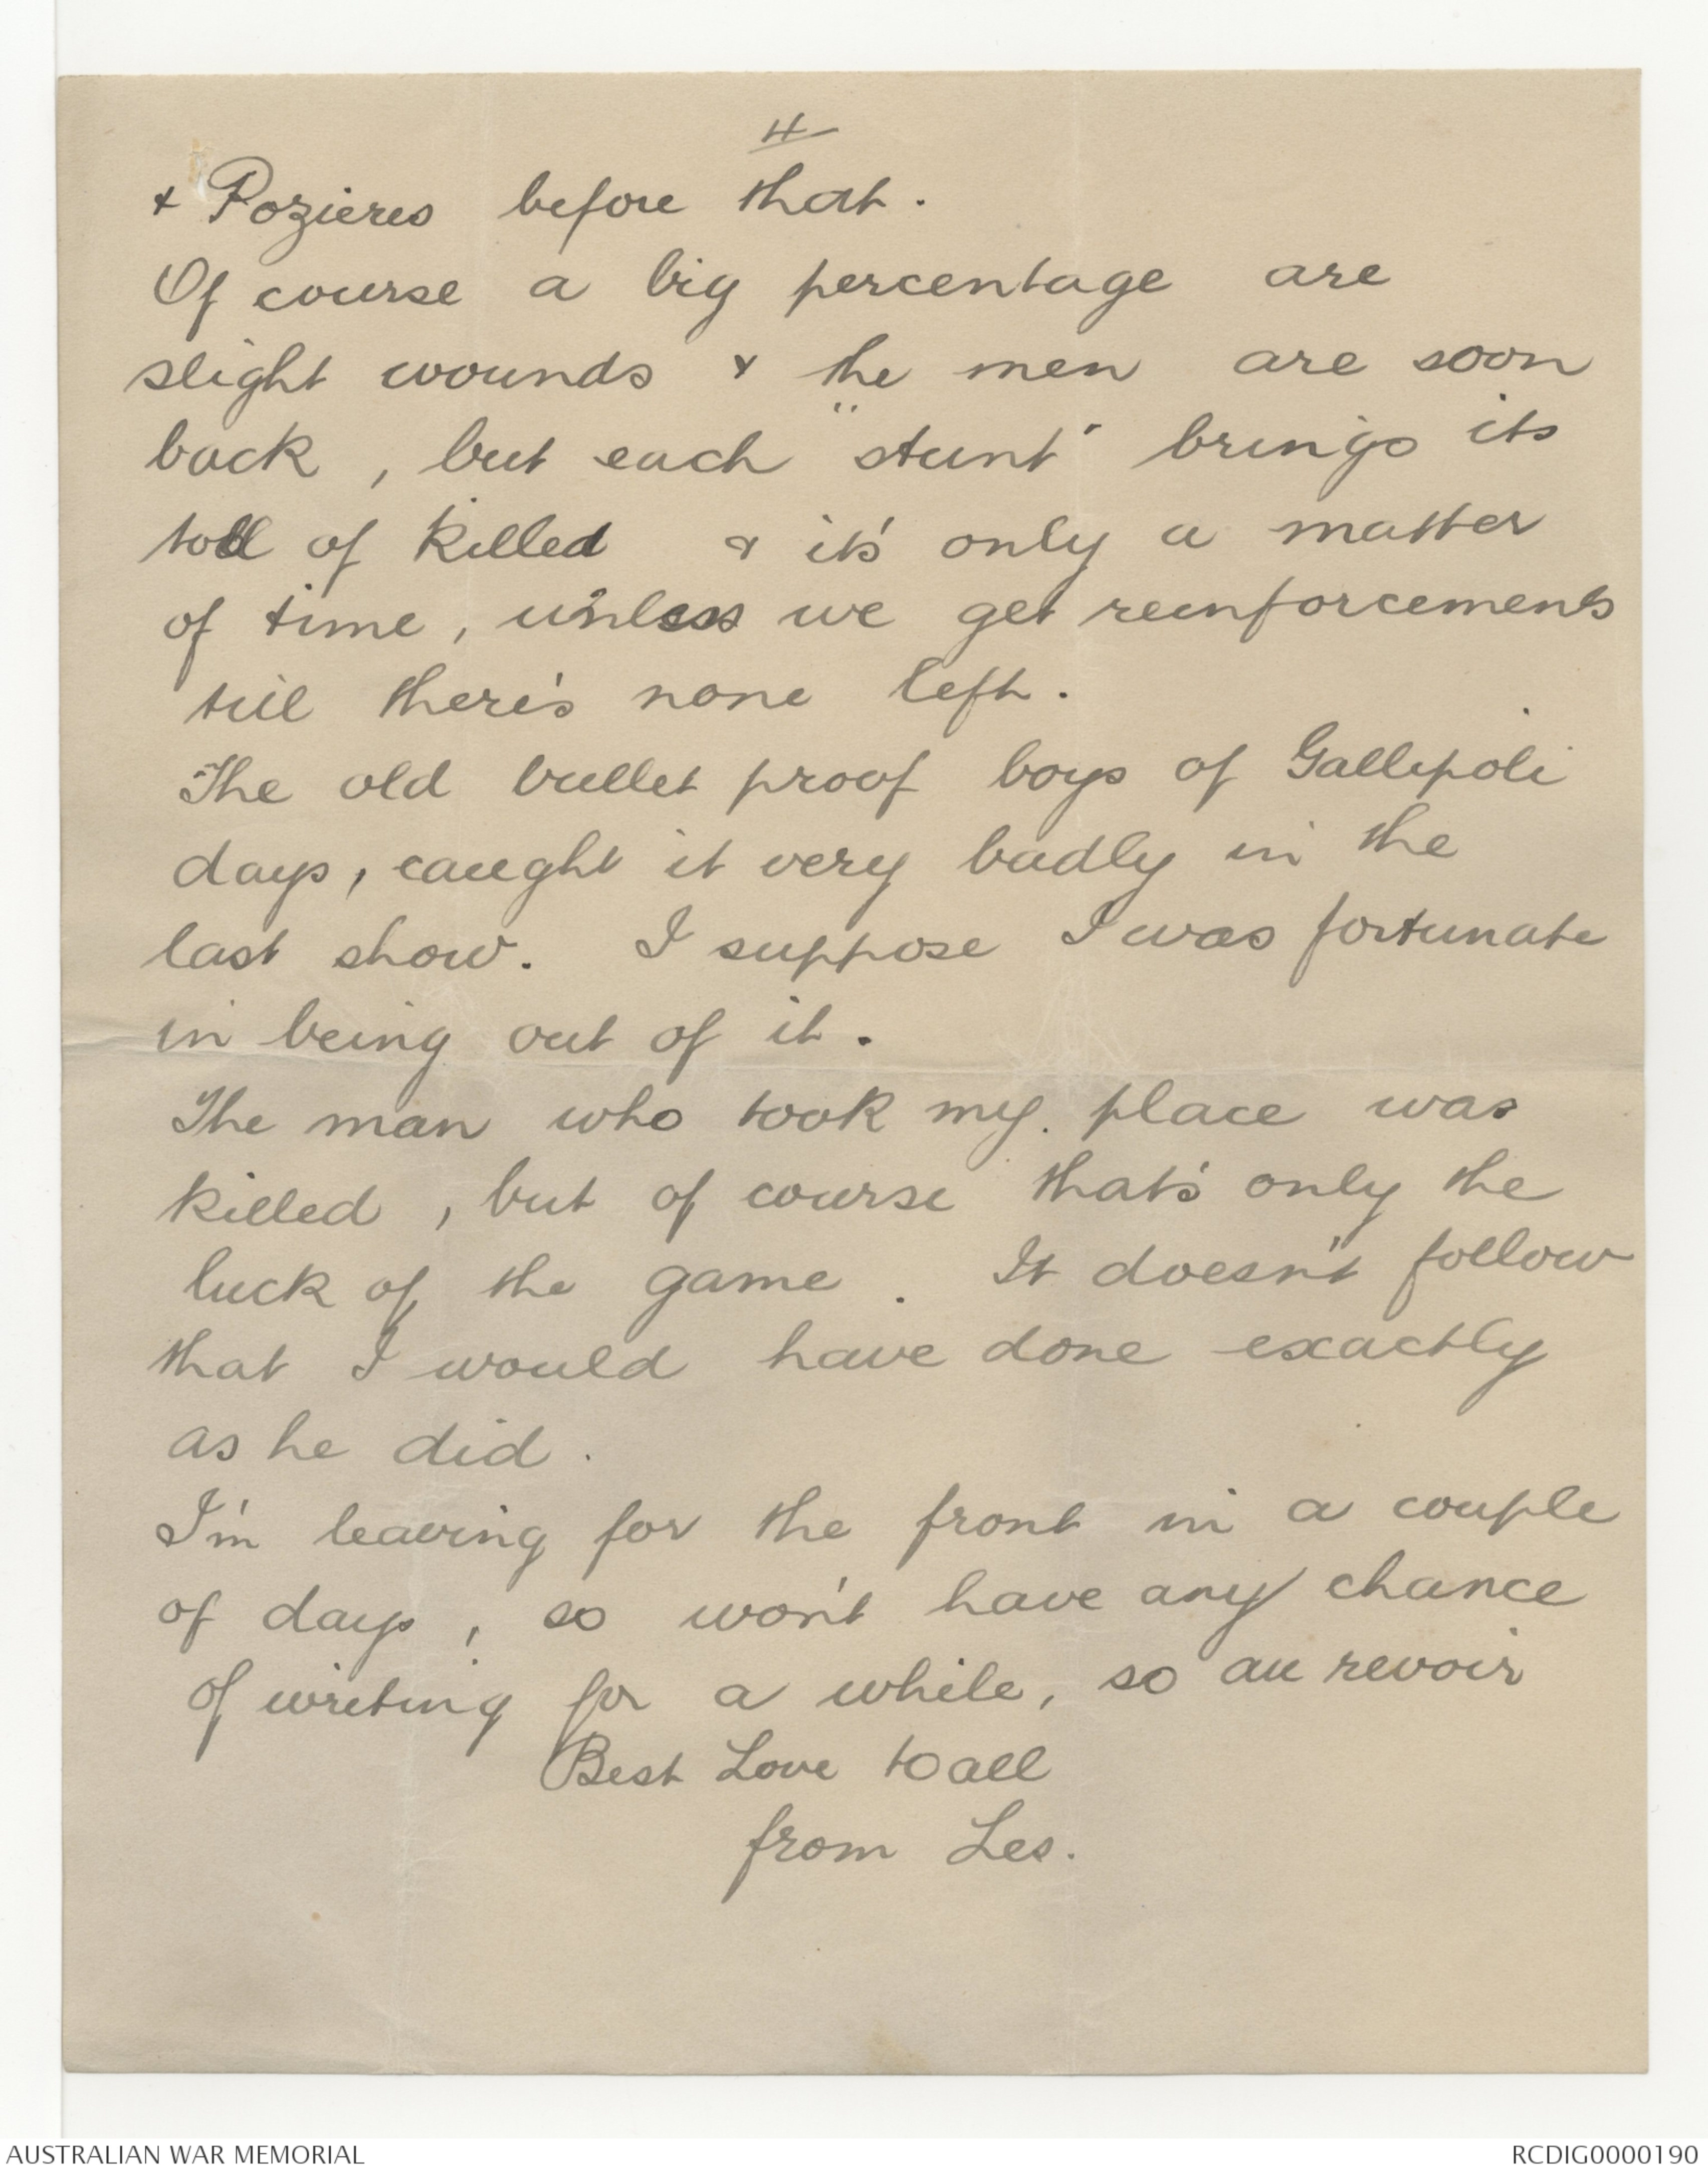 4
& Pozieres before that.
Of course a big percentage are
slight wounds & the men are soon
back, but each "stunt" brings its
toll of killed & it's only a matter
of time, unless we get reinforcements
till there's none left.
The old bullet proof boys of Gallipoli
days, caught it very badly in the
last show. I suppose I was fortunate
in being out of it.
The man who took my place was
killed, but of course that's only the
luck of the game. It doesn't follow
that I would have done exactly
as he did.
I'm leaving for the front in a couple
of days, so won't have any chance
of writing for a while, so au revoir
Best Love to all
from Les.
AUSTRALIAN WAR MEMORIAL
RCDIG0000190